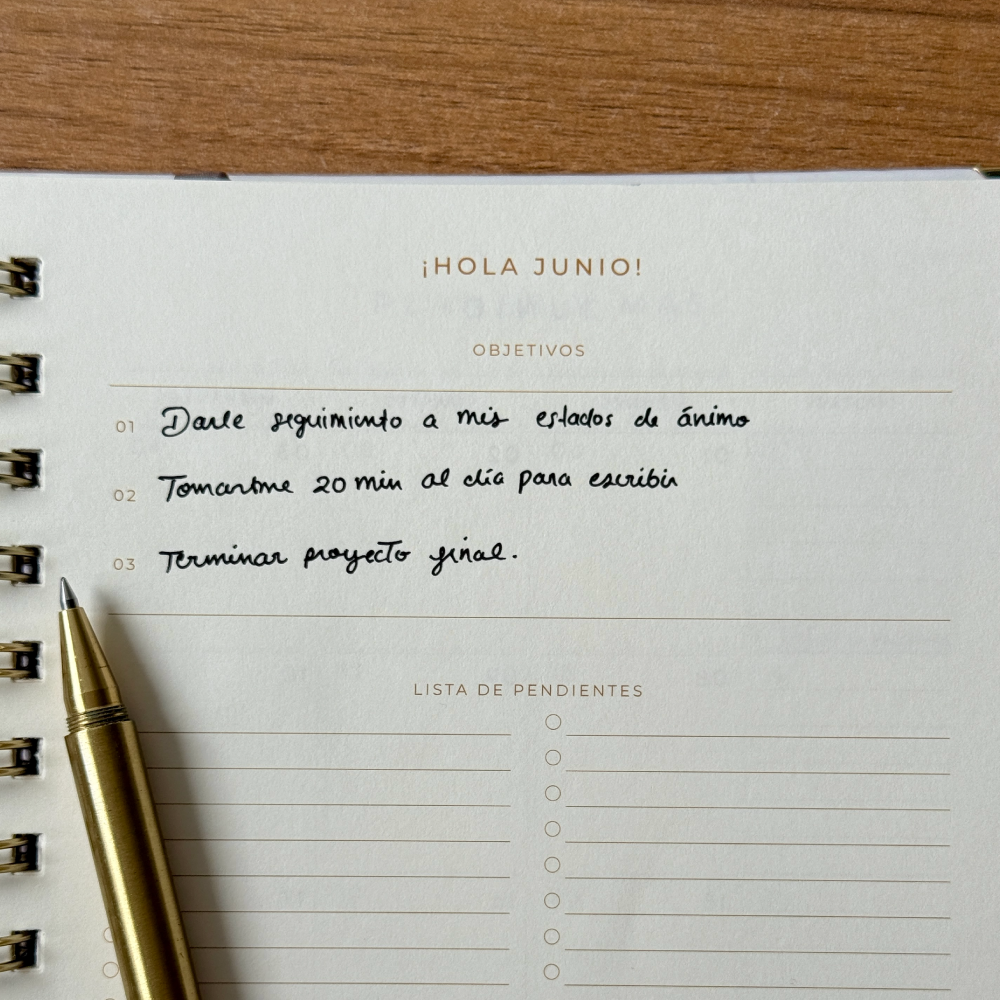 ¡HOLA JUNIO!
OBJETIVOS
01 Darle seguimiento a mis estados de ánimo
02 Tomarme 20 min al día para escribir
03 Terminar proyecto final.
LISTA DE PENDIENTES